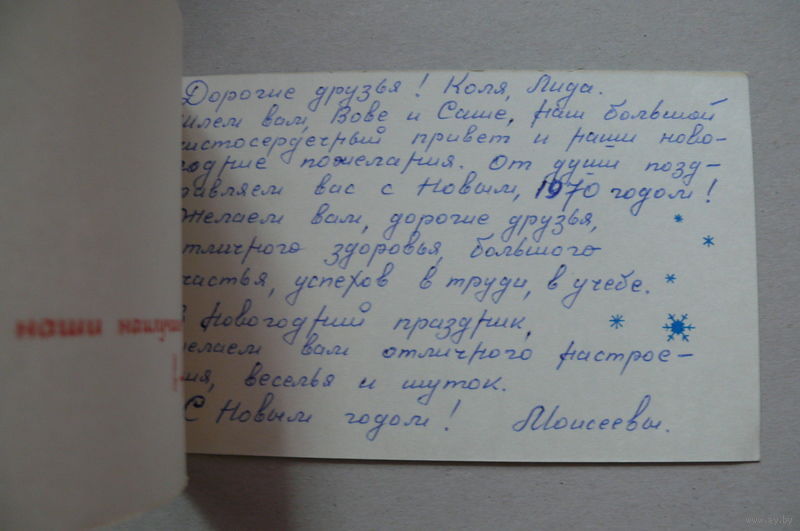 Дорогие друзья! Коля, Лида.
Шлем вам, Вове и Саше, наш большой
чистосердечный привет и наши ново-
годние пожелания. От души позд-
равляем вас с Новым, 1970 годом!
Желаем вам, дорогие друзья,
тличного здоровья, большого
частья, успехов в труди, в учебе.
В Новогодний праздник,
желаем вам отличного настрое-
ия, веселья и шуток.
С Новым годом! Моисеевы.
наши
www.ay.by